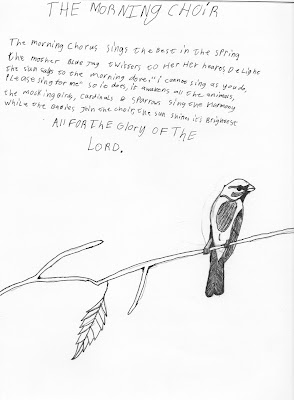 THE MORNING CHOIR
The morning chorus sings the best in the spring
the mother Blue Jay twitters to Her Her heares Delight
the sun says to the morning dove, "i cannot sing as you do,
Please sing for me" so ie does, it awakens all the animals,
the mockingbirds, cardinals & sparrows sing the Harmony
while the babies join the choir, the sun shines it's Brightest
All FOR THE GLORY OF THE
LORD.